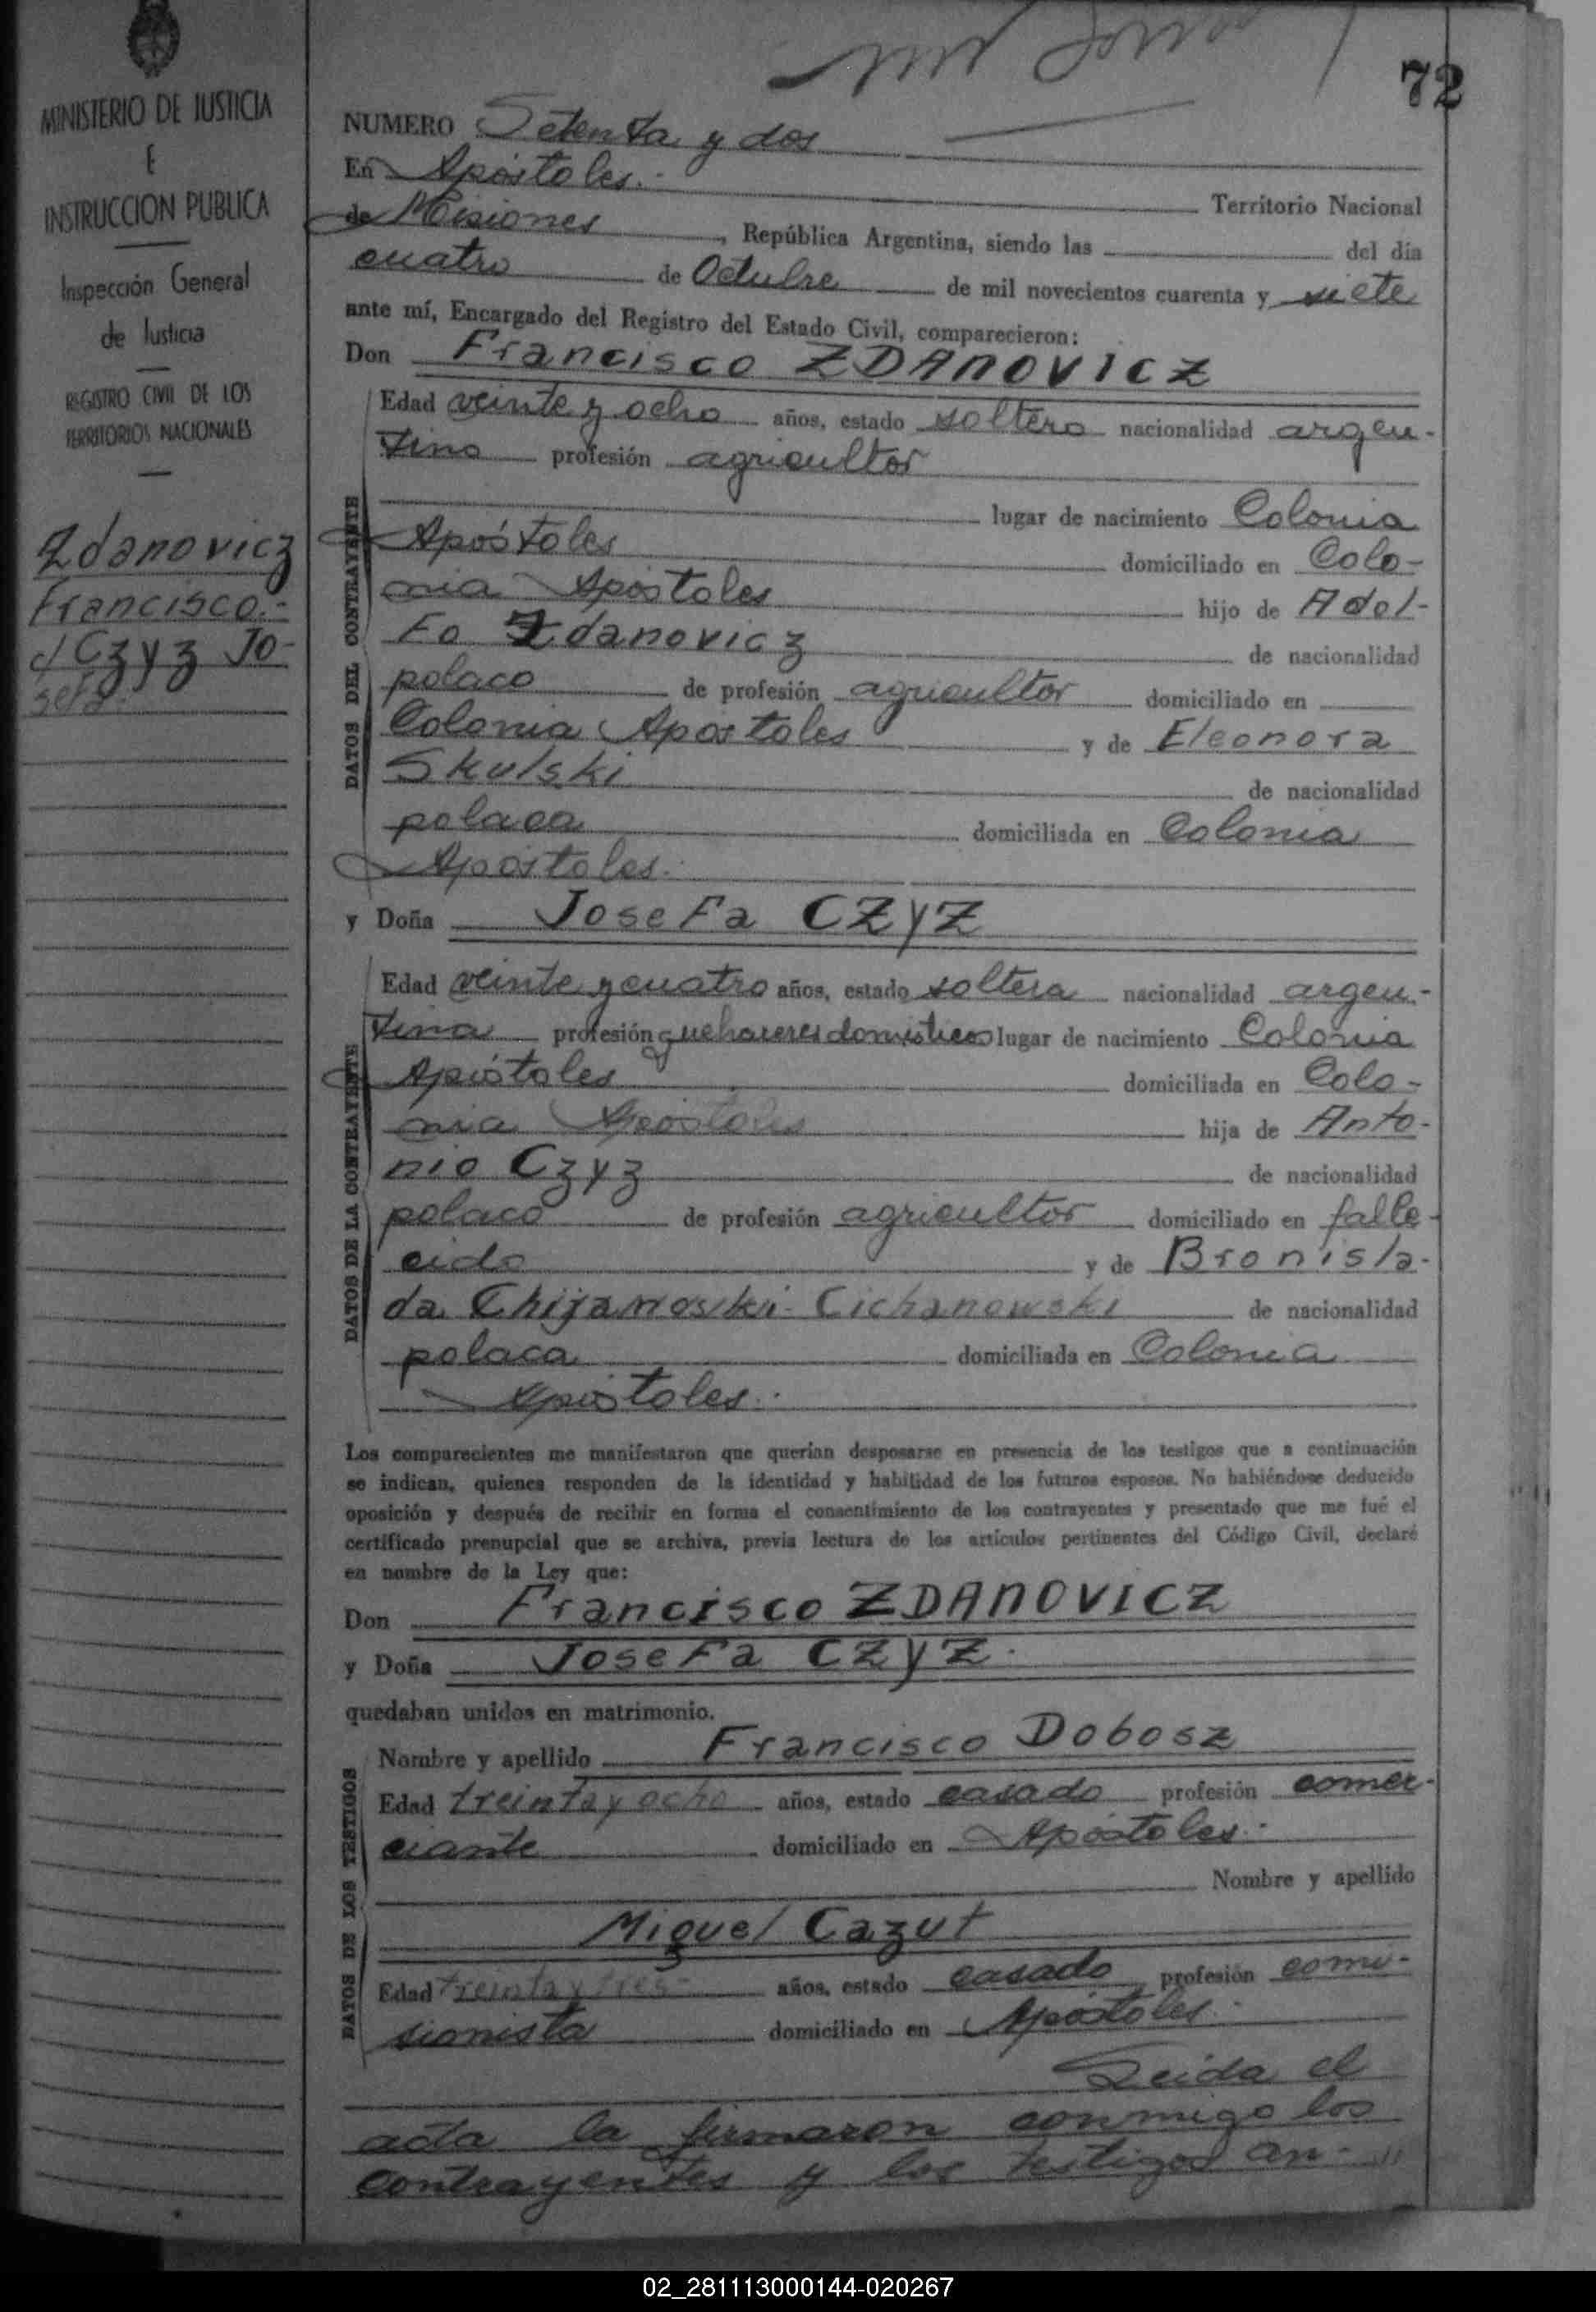 72
MINISTERIO DE JUSTICIA
E
INSTRUCCION PUBLICA
Inspección General
de Justicia
REGISTRO CIVIL DE LOS
TERRITORIOS NACIONALES
Zdanovicz
Francisco.-
c/ Czyz Jo-
sefa.
NUMERO Setenta y dos
En Apóstoles.- Territorio Nacional
de Misiones, República Argentina, siendo las del día
cuatro de Octubre de mil novecientos cuarenta y siete
ante mí, Encargado del Registro del Estado Civil, comparecieron:
Don Francisco ZDANOVICZ
DATOS DEL CONTRAYENTE
Edad veinte y ocho años, estado soltero nacionalidad argen-
tino profesión agricultor
lugar de nacimiento Colonia
Apóstoles domiciliado en Colo-
nia Apóstoles hijo de Adol-
fo Zdanovicz de nacionalidad
polaco de profesión agricultor domiciliado en
Colonia Apóstoles y de Eleonora
Skulski de nacionalidad
polaca domiciliada en Colonia
Apóstoles.-
y Doña Josefa CZYZ
DATOS DE LA CONTRAYENTE
Edad veinte y cuatro años, estado soltera nacionalidad argen-
tina profesión quehaceres domésticos lugar de nacimiento Colonia
Apóstoles domiciliada en Colo-
nia Apóstoles hija de Anto-
nio Czyz de nacionalidad
polaco de profesión agricultor domiciliado en falle-
cido y de Bronisla-
da Chijanoski- Cichanowski de nacionalidad
polaca domiciliada en Colonia
Apóstoles.-
Los comparecientes me manifestaron que querían desposarse en presencia de los testigos que a continuación
se indican, quienes responden de la identidad y habilidad de los futuros esposos. No habiéndose deducido
oposición y después de recibir en forma el consentimiento de los contrayentes y presentado que me fué el
certificado prenupcial que se archiva, previa lectura de los artículos pertinentes del Código Civil, declaré
en nombre de la Ley que:
Don Francisco ZDANOVICZ
y Doña Josefa CZYZ.
quedaban unidos en matrimonio.
DATOS DE LOS TESTIGOS
Nombre y apellido Francisco Dobosz
Edad treinta y ocho años, estado casado profesión comer-
ciante domiciliado en Apóstoles.-
Nombre y apellido
Miguel Cazut
Edad treinta y tres- años, estado casado profesión comi-
sionista domiciliado en Apóstoles.-
Leida el
acta la firmaron conmigo los
contrayentes y los testigos an-
02_281113000144-020267